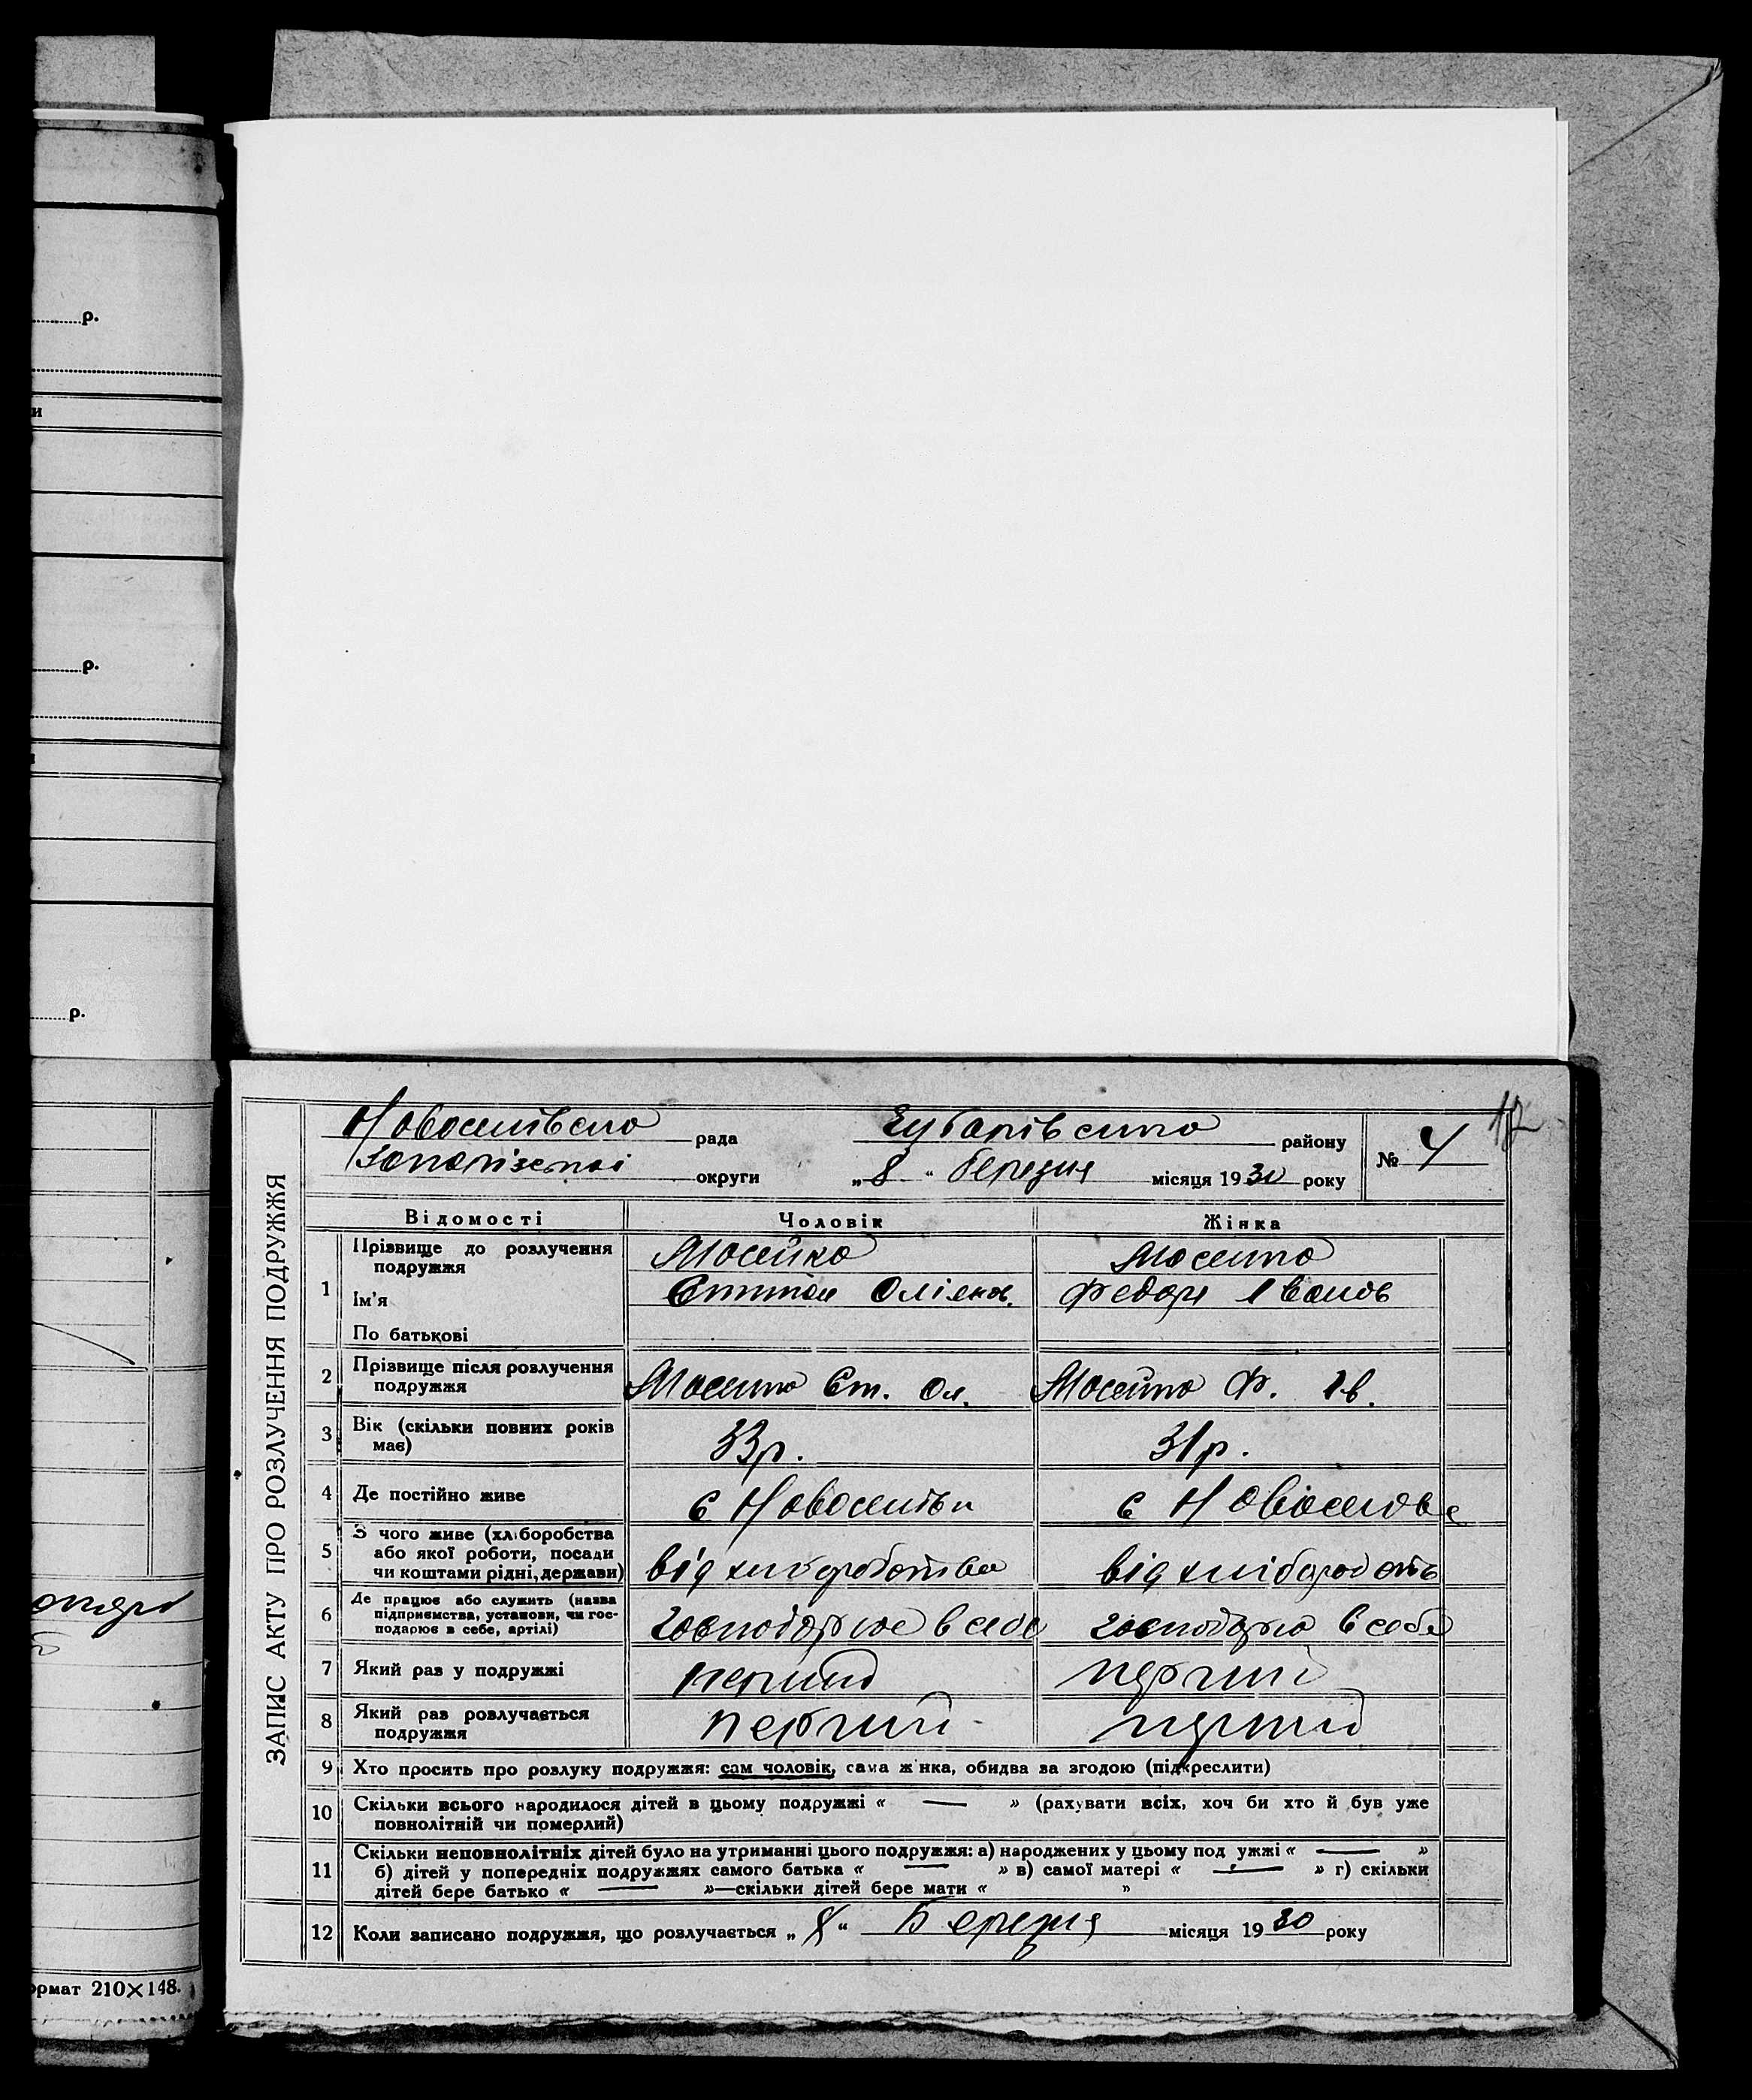 р.
и
р.
р.
ормат 210×148.
12
ЗАПИС АКТУ ПРО РОЗЛУЧЕННЯ ПОДРУЖЖЯ
Новоселівсько рада Чубарівсько району № 4
округи „8“ березня місяця 1930 року
Відомості Чоловік Жінка
1 Прізвище до розлучення подружжя Мосейко Мосейко
Ім'я Федора Іванов
По батькові
2 Прізвище після розлучення подружжя Мосейко Ст. Ол. Мосейко Ф. Ів.
3 Вік (скільки повних років має) 33р. 31р.
4 Де постійно живе с Новоселівка с Новоселовке
5 З чого живе (хліборобства
або якої роботи, посади
чи коштами рідні, держави) від хліборобства від хлібороб
6 Де працює або служить (назва
підприємства, установи, чи гос-
подарює в себе, артілі) господарює в себе господарю в себе
7 Який раз у подружжі перший перший
8 Який раз розлучається
подружжя перший перший
9 Хто просить про розлуку подружжя: сам чоловік, сама жінка, обидва за згодою (підкреслити)
10 Скільки всього народилося дітей в цьому подружжі « — » (рахувати всіх, хоч би хто й був уже
повнолітній чи померлий)
11 Скільки неповнолітніх дітей було на утриманні цього подружжя: а) народжених у цьому подружжі « — »
б) дітей у попередніх подружжях самого батька « — » в) самої матері « — » г) скільки
дітей бере батько « — »—скільки дітей бере мати « »
12 Коли записано подружжя, що розлучається „8“ Березня місяця 1930 року